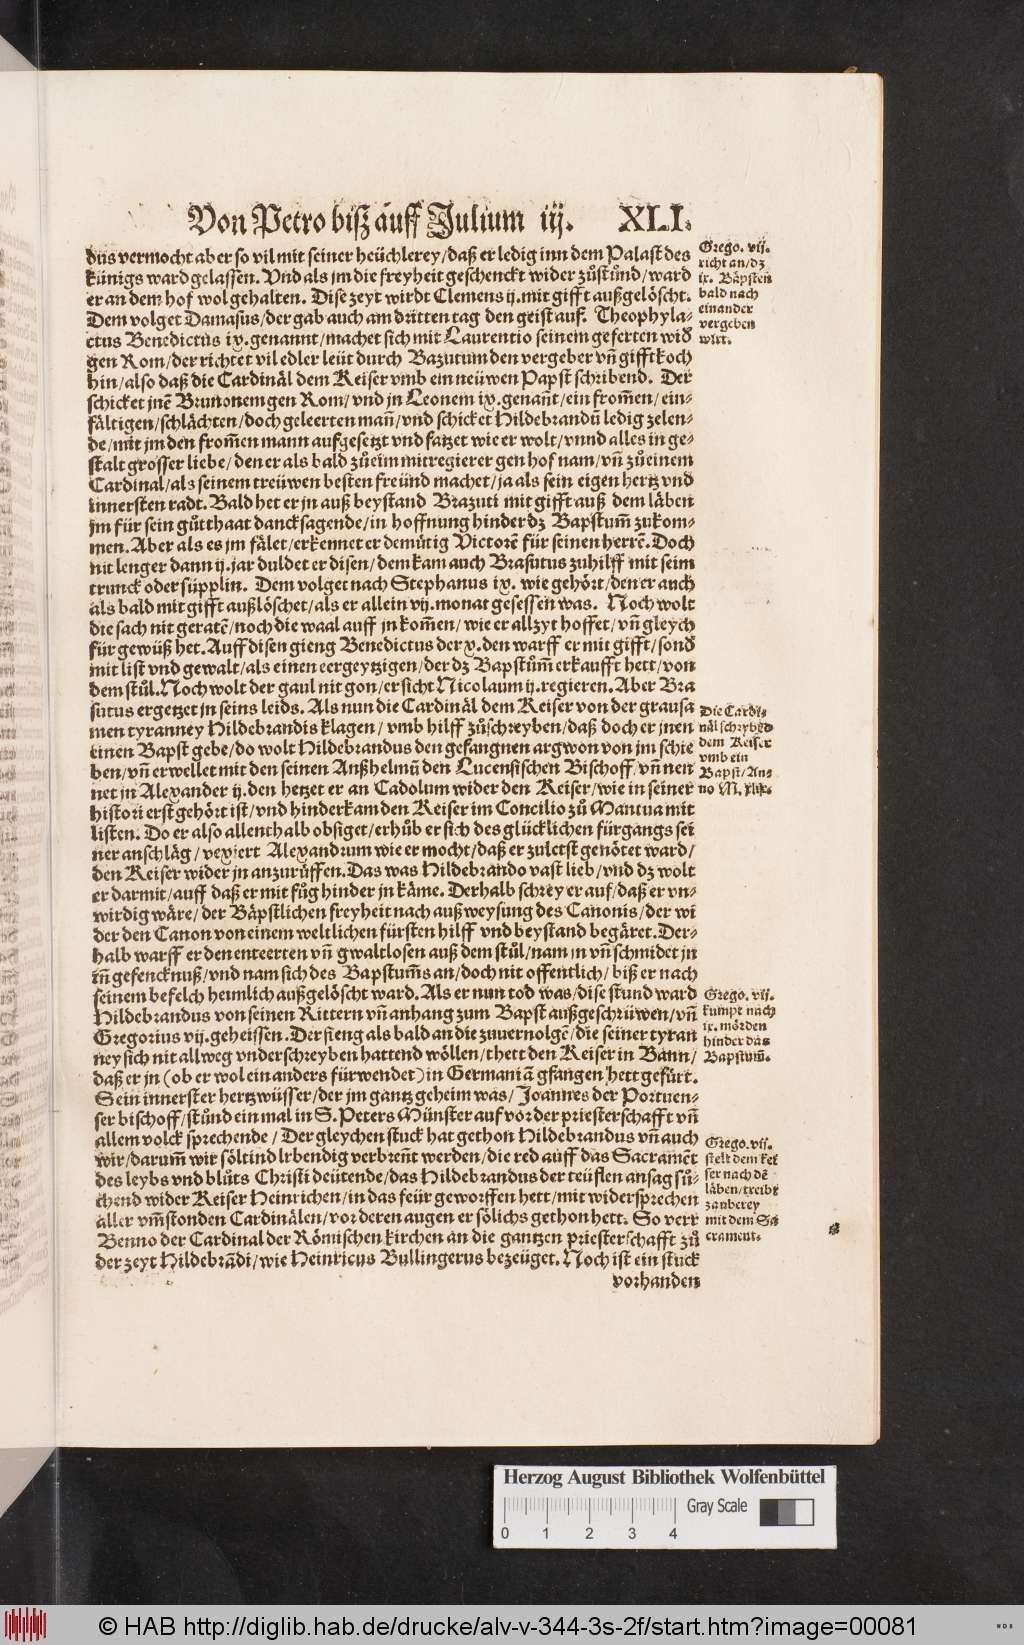 Von Petro biß auff Julium iij. XLI.
dus vermocht aber so vil mit seiner heüchlerey/daß er ledig inn dem Palast des
künigs ward gelassen. Vnd als jm die freyheit geschenckt wider zůstůnd/ward
er an dem hof wol gehalten. Dise zeyt wirdt Clemens ij. mit gifft außgelöscht.
Dem volget Damasus/der gab auch am dritten tag den geist auf. Theophyla-
ctus Benedictus ix. genannt/machet sich mit Laurentio seinem geferten wid
gen Rom/der richtet vil edler leüt durch Bazutum den vergeber vñ gifftkoch
hin/also daß die Cardinäl dem Keiser vmb ein neüwen Papst schribend. Der
schicket jnē Brunonem gen Rom/vnd jn Leonem ix. genañt/ein from̄en/ein-
fältigen/schlächten/doch geleerten mañ/vnd schicket Hildebrandū ledig zelen-
de/mit jm den from̄en mann aufgesetzt vnd fatzet wie er wolt/vnnd alles in ge-
stalt grosser liebe/den er als bald zů eim mitregierer gen hof nam/vñ zů einem
Cardinal/als seinem treüwen besten freünd machet/ja als sein eigen hertz vnd
innersten radt. Bald het er jn auß beystand Brazuti mit gifft auß dem läben
jm für sein gůtthaat dancksagende/in hoffnung hinder dz Bapstum̄ zukom-
men. Aber als es jm fälet/erkennet er demütig Victorē für seinen herrē. Doch
nit lenger dann ij. jar duldet er disen/dem kam auch Brasutus zuhilff mit seim
trunck oder süpplin. Dem volget nach Stephanus ix. wie gehört/den er auch
als bald mit gifft außlöschet/als er allein vij. monat gesessen was. Noch wolt
die sach nit geratē/noch die waal auff jn kom̄en/wie er allzyt hoffet/vñ gleych
für gewüß het. Auff disen gieng Benedictus der x. den warff er mit gifft/sond
mit list vnd gewalt/als einen eergeytzigen/der dz Bapstům̄ erkaufft hett/von
dem stůl. Noch wolt der gaul nit gon/er sicht Nicolaum ij. regieren. Aber Bra
sutus ergetzet jn seins leids. Als nun die Cardinäl dem Keiser von der grausa
men tyranney Hildebrandis klagen/vmb hilff zůschreyben/daß doch er jnen
einen Bapst gebe/do wolt Hildebrandus den gefangnen argwon von jm schie
ben/vñ erwellet mit den seinen Anßhelmū den Lucensischen Bischoff/vñ nen
net jn Alexander ij. den hetzet er an Cadolum wider den Keiser/wie in seiner
histori erst gehört ist/vnd hinderkam den Keiser im Concilio zů Mantua mit
listen. Do er also allenthalb obsiget/erhůb er sich des glücklichen fürgangs sei
ner anschläg/vexiert Alexandrum wie er mocht/daß er zuletst genötet ward/
den Keiser wider jn anzurüffen. Das was Hildebrando vast lieb/vnd dz wolt
er darmit/auff daß er mit fůg hinder jn käme. Derhalb schrey er auf/daß er vn-
wirdig wäre/der Bäpstlichen freyheit nach außweysung des Canonis/der wi
der den Canon von einem weltlichen fürsten hilff vnd beystand begäret. Der-
halb warff er den enteerten vñ gwaltlosen auß dem stůl/nam jn vñ schmidet jn
in gefencknuß/vnd nam sich des Bapstum̄s an/doch nit offentlich/biß er nach
seinem befelch heimlich außgelöscht ward. Als er nun tod was/dise stund ward
Hildebrandus von seinen Rittern vñ anhang zum Bapst außgeschrüwen/vñ
Gregorius vij. geheissen. Der fieng als bald an die zuuernolgē/die seiner tyran
ney sich nit allweg vnderschreyben hattend wöllen/thett den Keiser in Bann/
daß er jn (ob er wol ein anders fürwendet) in Germaniā gfangen hett gefürt.
Sein innerster hertzwüsser/der jm gantz geheim was/Joannes der Portuen-
ser bischoff/stůnd ein mal in S. Peters Münster auf vor der priesterschafft vñ
allem volck sprechende/Der gleychen stuck hat gethon Hildebrandus vñ auch
wir/darum̄ wir söltind lebendig verbreñt werden/die red auff das Sacramēt
des leybs vnd blůts Christi deütende/das Hildebrandus der teüflen ansag sů-
chend wider Keiser Heinrichen/in das feür geworffen hett/mit widersprechen
aller vm̄stonden Cardinälen/vor deren augen er sölichs gethon hett. So verr
Benno der Cardinal der Römischen kirchen an die gantzen priesterschafft zů
der zeyt Hildebrādi/wie Heinricus Bullingerus bezeüget. Noch ist ein stuck
vorhanden
Grego. vij.
richt an/dz
ix. Bäpsten
bald nach
einander
vergeben
wirt.
Die Cardi-
näl schrybēd
dem Keiser
vmb ein
Bapst/An-
no M. xlix.
Grego. vij.
kumpt nach
ix. mörden
hinder das
Bapstum̄.
Grego. vij.
stelt dem kei
ser nach dē
läben/treibt
zauberey
mit dem Sa
crament.
Herzog August Bibliothek Wolfenbüttel
Gray Scale
0 1 2 3 4
© HAB http://diglib.hab.de/drucke/alv-v-344-3s-2f/start.htm?image=00081